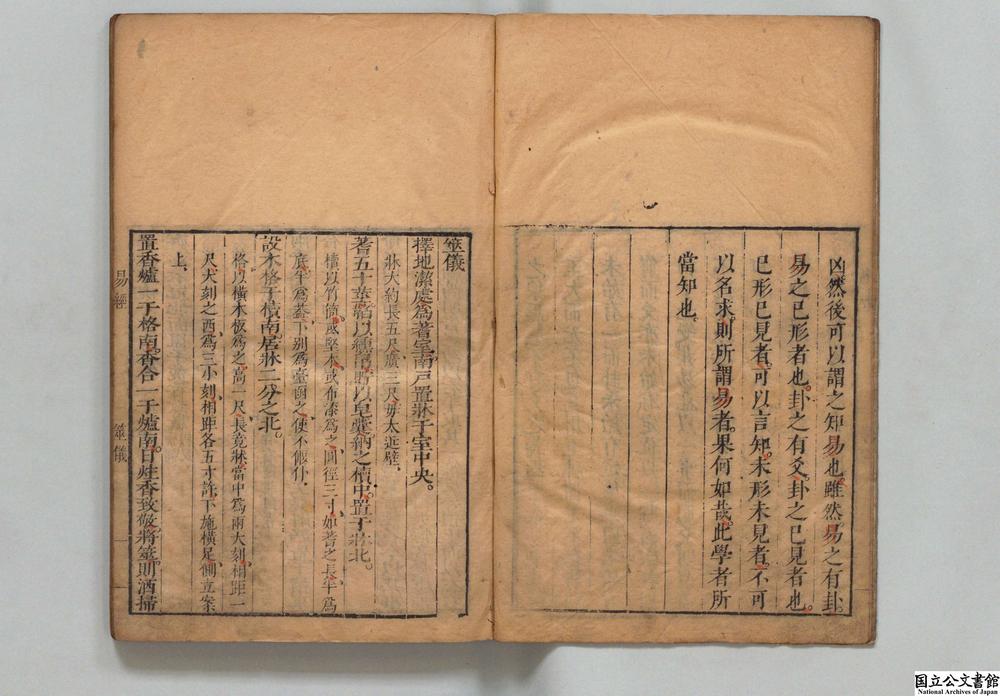 凶然後可以謂之知易也雖然易之有卦
易之已形者也卦之有爻卦之已見者也
已形已見者可以言知未形未見者不可
以名求則所謂易者果何如哉此學者所
當知也
筮儀
擇地潔處爲蓍室南戸置牀于室中央
牀大約長五尺廣三尺毋太近壁
蓍五十莖韜以纁帛貯以皂囊納之櫝中置于牀北
櫝以竹筒或堅木或布漆爲之圓徑三寸如蓍之長半爲
底半爲蓋下别爲臺函之使不偃仆
設木格于櫝南居牀二分之北
格以橫木板爲之高一尺長竟牀當中爲兩大刻相距一
尺大刻之西爲三小刻相距各五寸許下施橫足側立案
上
置香爐一于格南香合一于爐南日炷香致敬將筮則洒掃
易經
筮儀
一
国立公文書館
National Archives of Japan